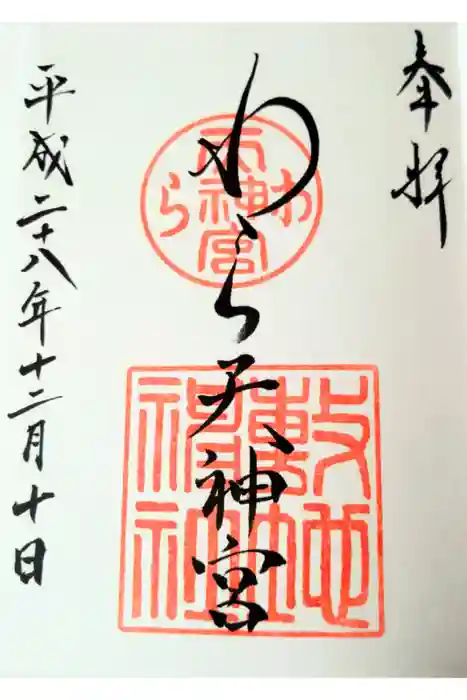 奉拝
わら天神宮
わら天神宮
敷地神社
平成二十八年十二月十日